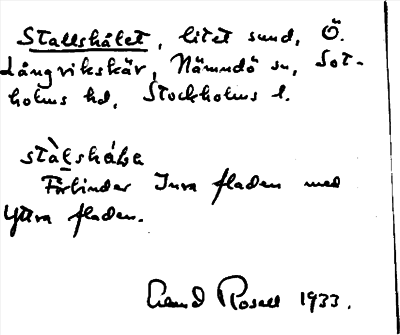 Stallshålet, litet sund, Ö.
Långvikskär, Nämndö sn, Sot-
holms hd, Stockholms l.
stàlshåla
Förbinder Inra fladen med
Yttra fladen.
Rosell 1933.